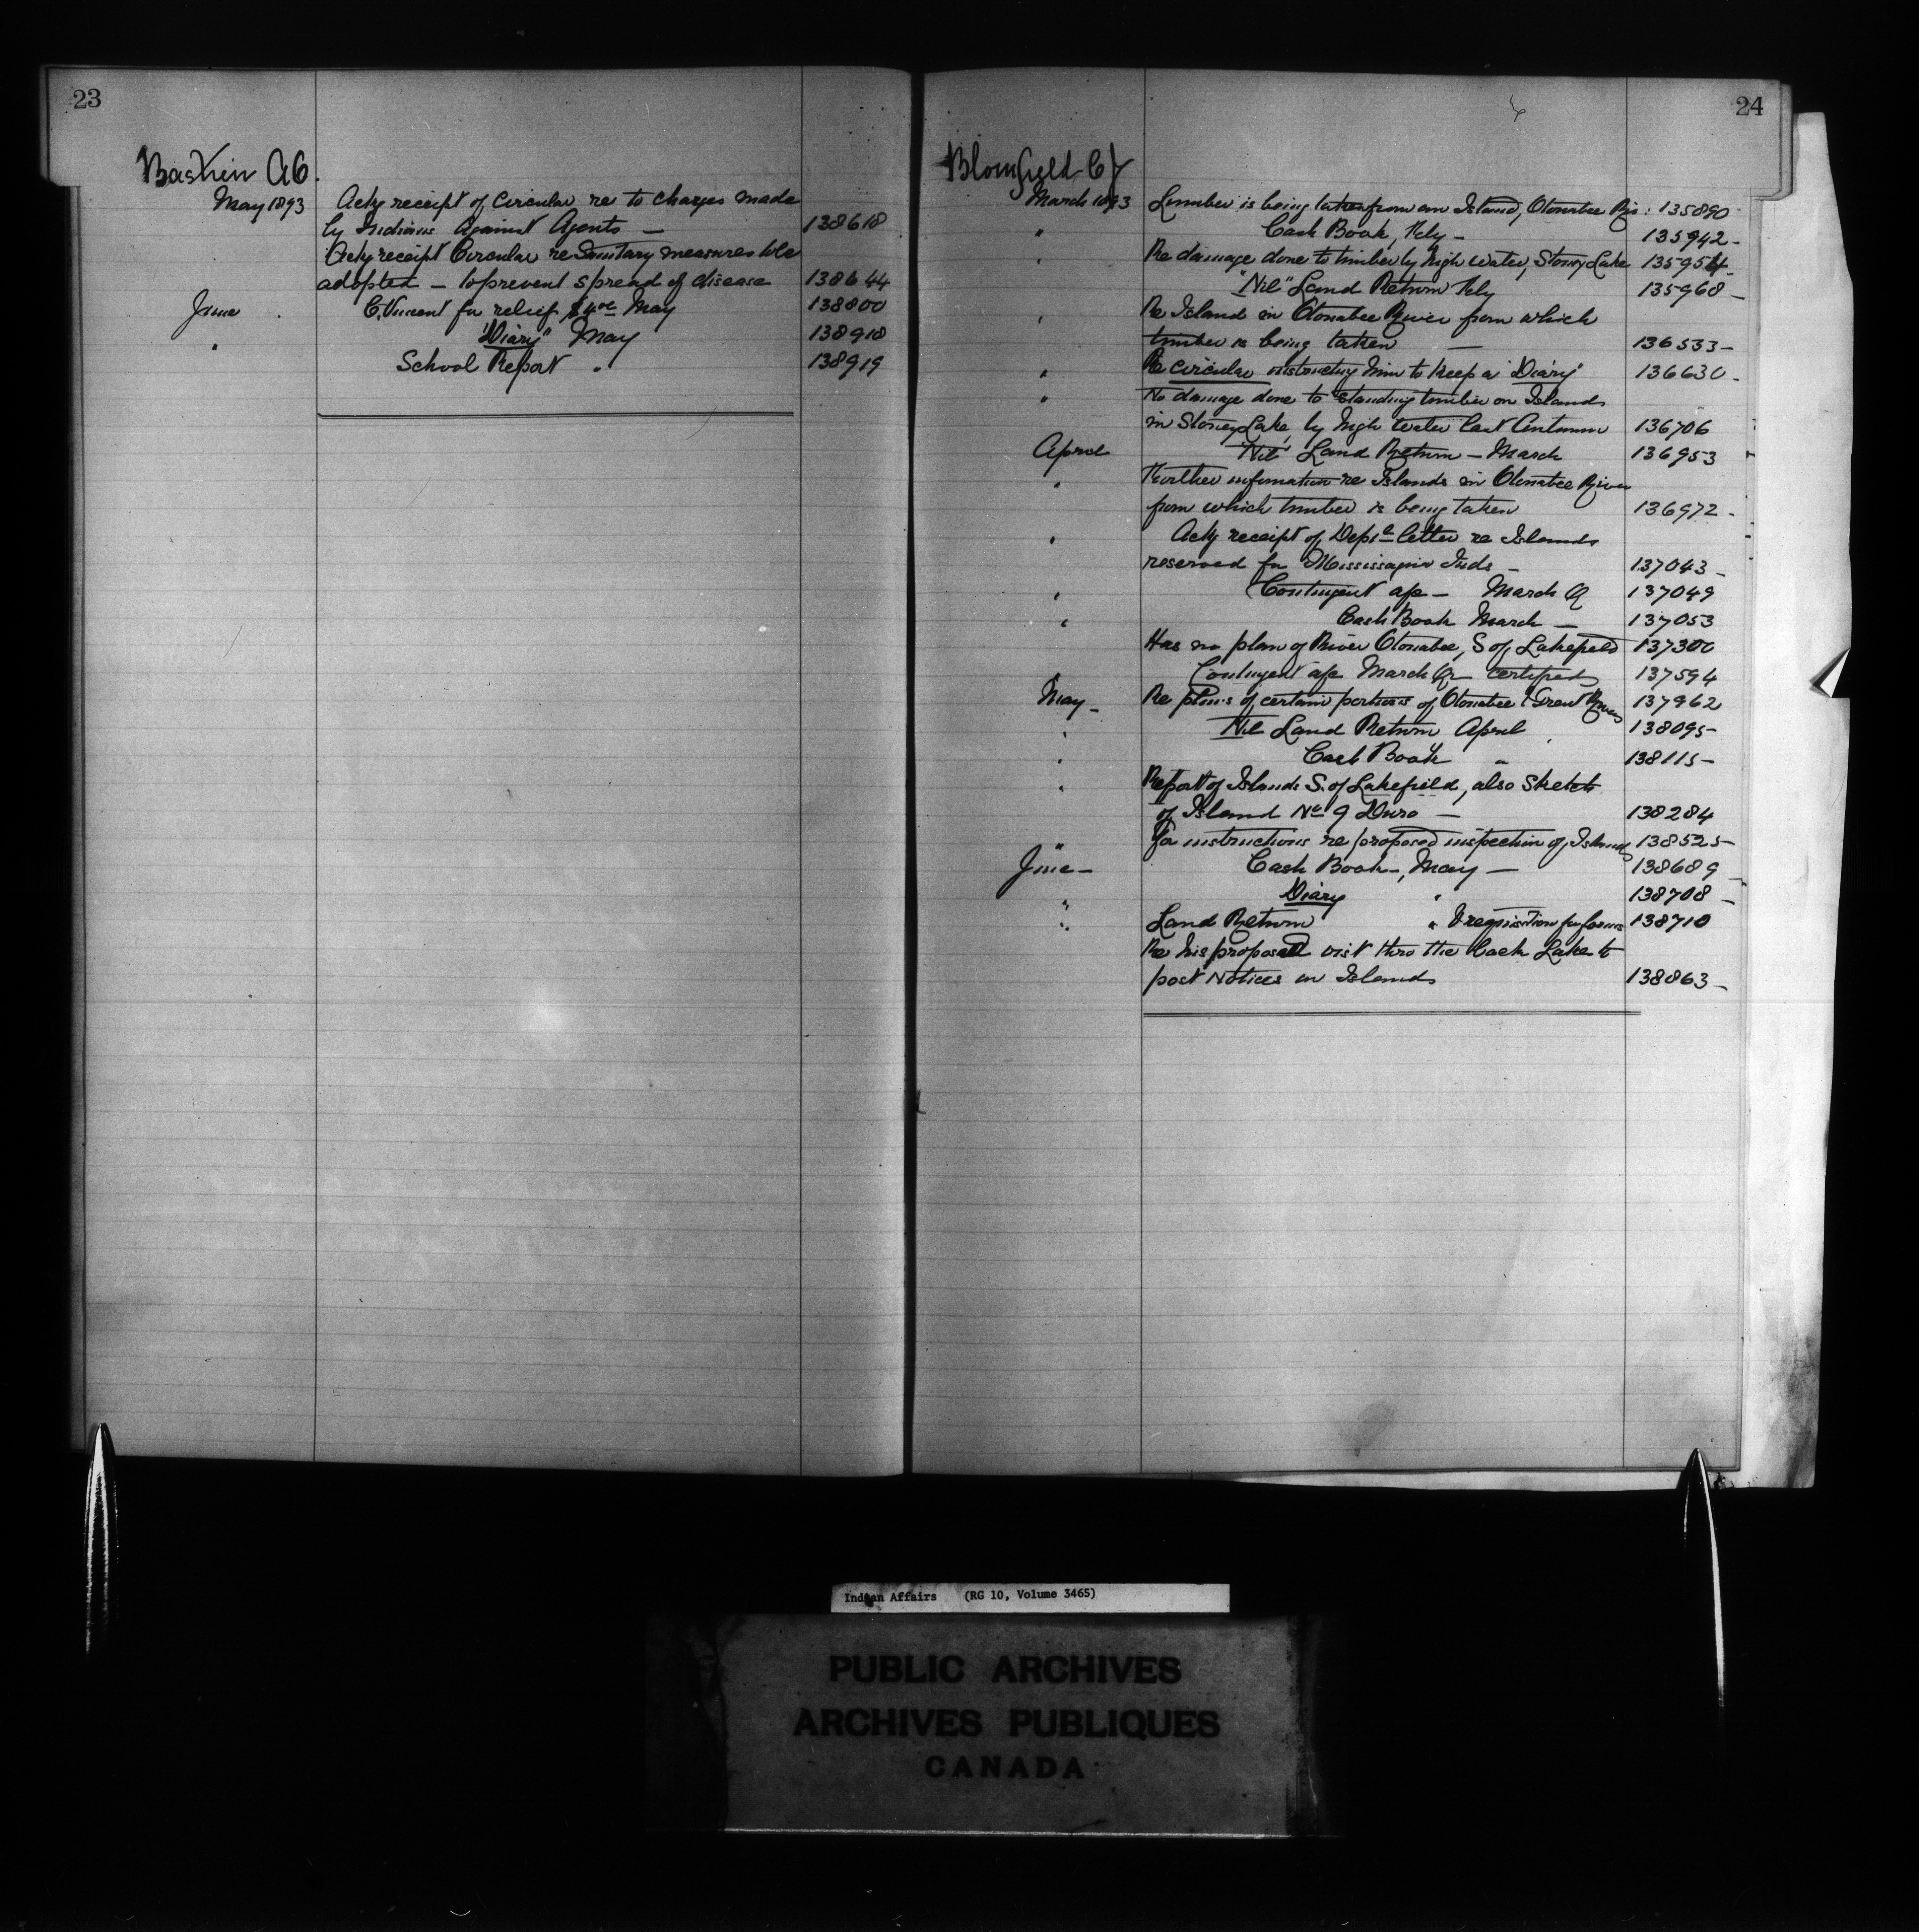 23
Baskin A6.
May 1893 Ackg receipt of circular re to charges made
by Indians against Agents — 138618
Ackg receipt Circular re Sanitary measures to be
adopted — to prevent spread of disease 138644
June C. Vincent for relief $4.00 May 138800
" "Diary" May 138918
School Report " 138919
24
Blomfield C J
March 1893 Lumber is being taken from an Island, Otonabee Riv: 135890
" Cash Book, Feby — 135942 -
" Re damage done to timber by high water, Stoney Lake 135954 -
"Nil" Land Return Feby 135968 -
" Re Island in Otonabee River from which
timber is being taken — 136533 -
" Re circular instructing him to keep a "Diary" 136630 -
" No damage done to standing timber on Islands
in Stoney Lake, by high water last Autumn 136706
April "Nil" Land Return — March 136953
" Further information re Islands in Otonabee River
from which timber is being taken 136972 -
" Ackg receipt of Dept's letter re Islands
reserved for Mississagua Inds — 137043 -
" Contingent a/c — March Q 137049
" Cash Book March — 137053
Has no plan of River Otonabee, S of Lakefield 137300
Contingent a/c March Qr certified 137594
May - Re plans of certain portions of Otonabee & Trent Rivers 137962
" Nil Land Return April 138095 -
" Cash Book " 138115 -
" Report of Islands S. of Lakefield, also Sketch
of Island No 9 Duro — 138284
" For instructions re proposed inspection of Islands 138525 -
June - Cash Book -, May — 138689 -
" Diary " 138708 -
" Land Return " & requisition for forms 138710
Re his proposed visit thro the back Lake to
post Notices on Islands 138863 -
Indian Affairs (RG 10, Volume 3465)
PUBLIC ARCHIVES
ARCHIVES PUBLIQUES
CANADA